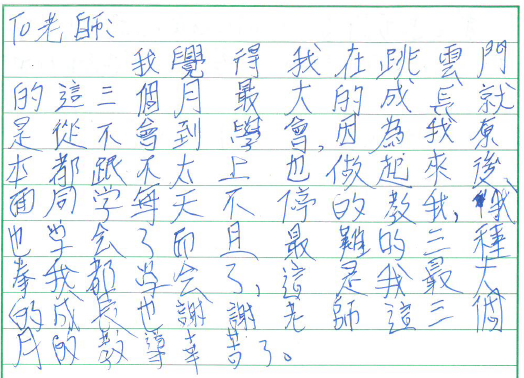 To老師:
我覺得我在跳雲門
的這三個月最大的成長就
是從不會到學會,因為我原
本都跟不太上也做起來後、
面同学每天不停的教我,我
也学会了而且最難的三種
拳我都学会了,這是我最大
的成長也謝謝老師這三個
月的教導辛苦了。